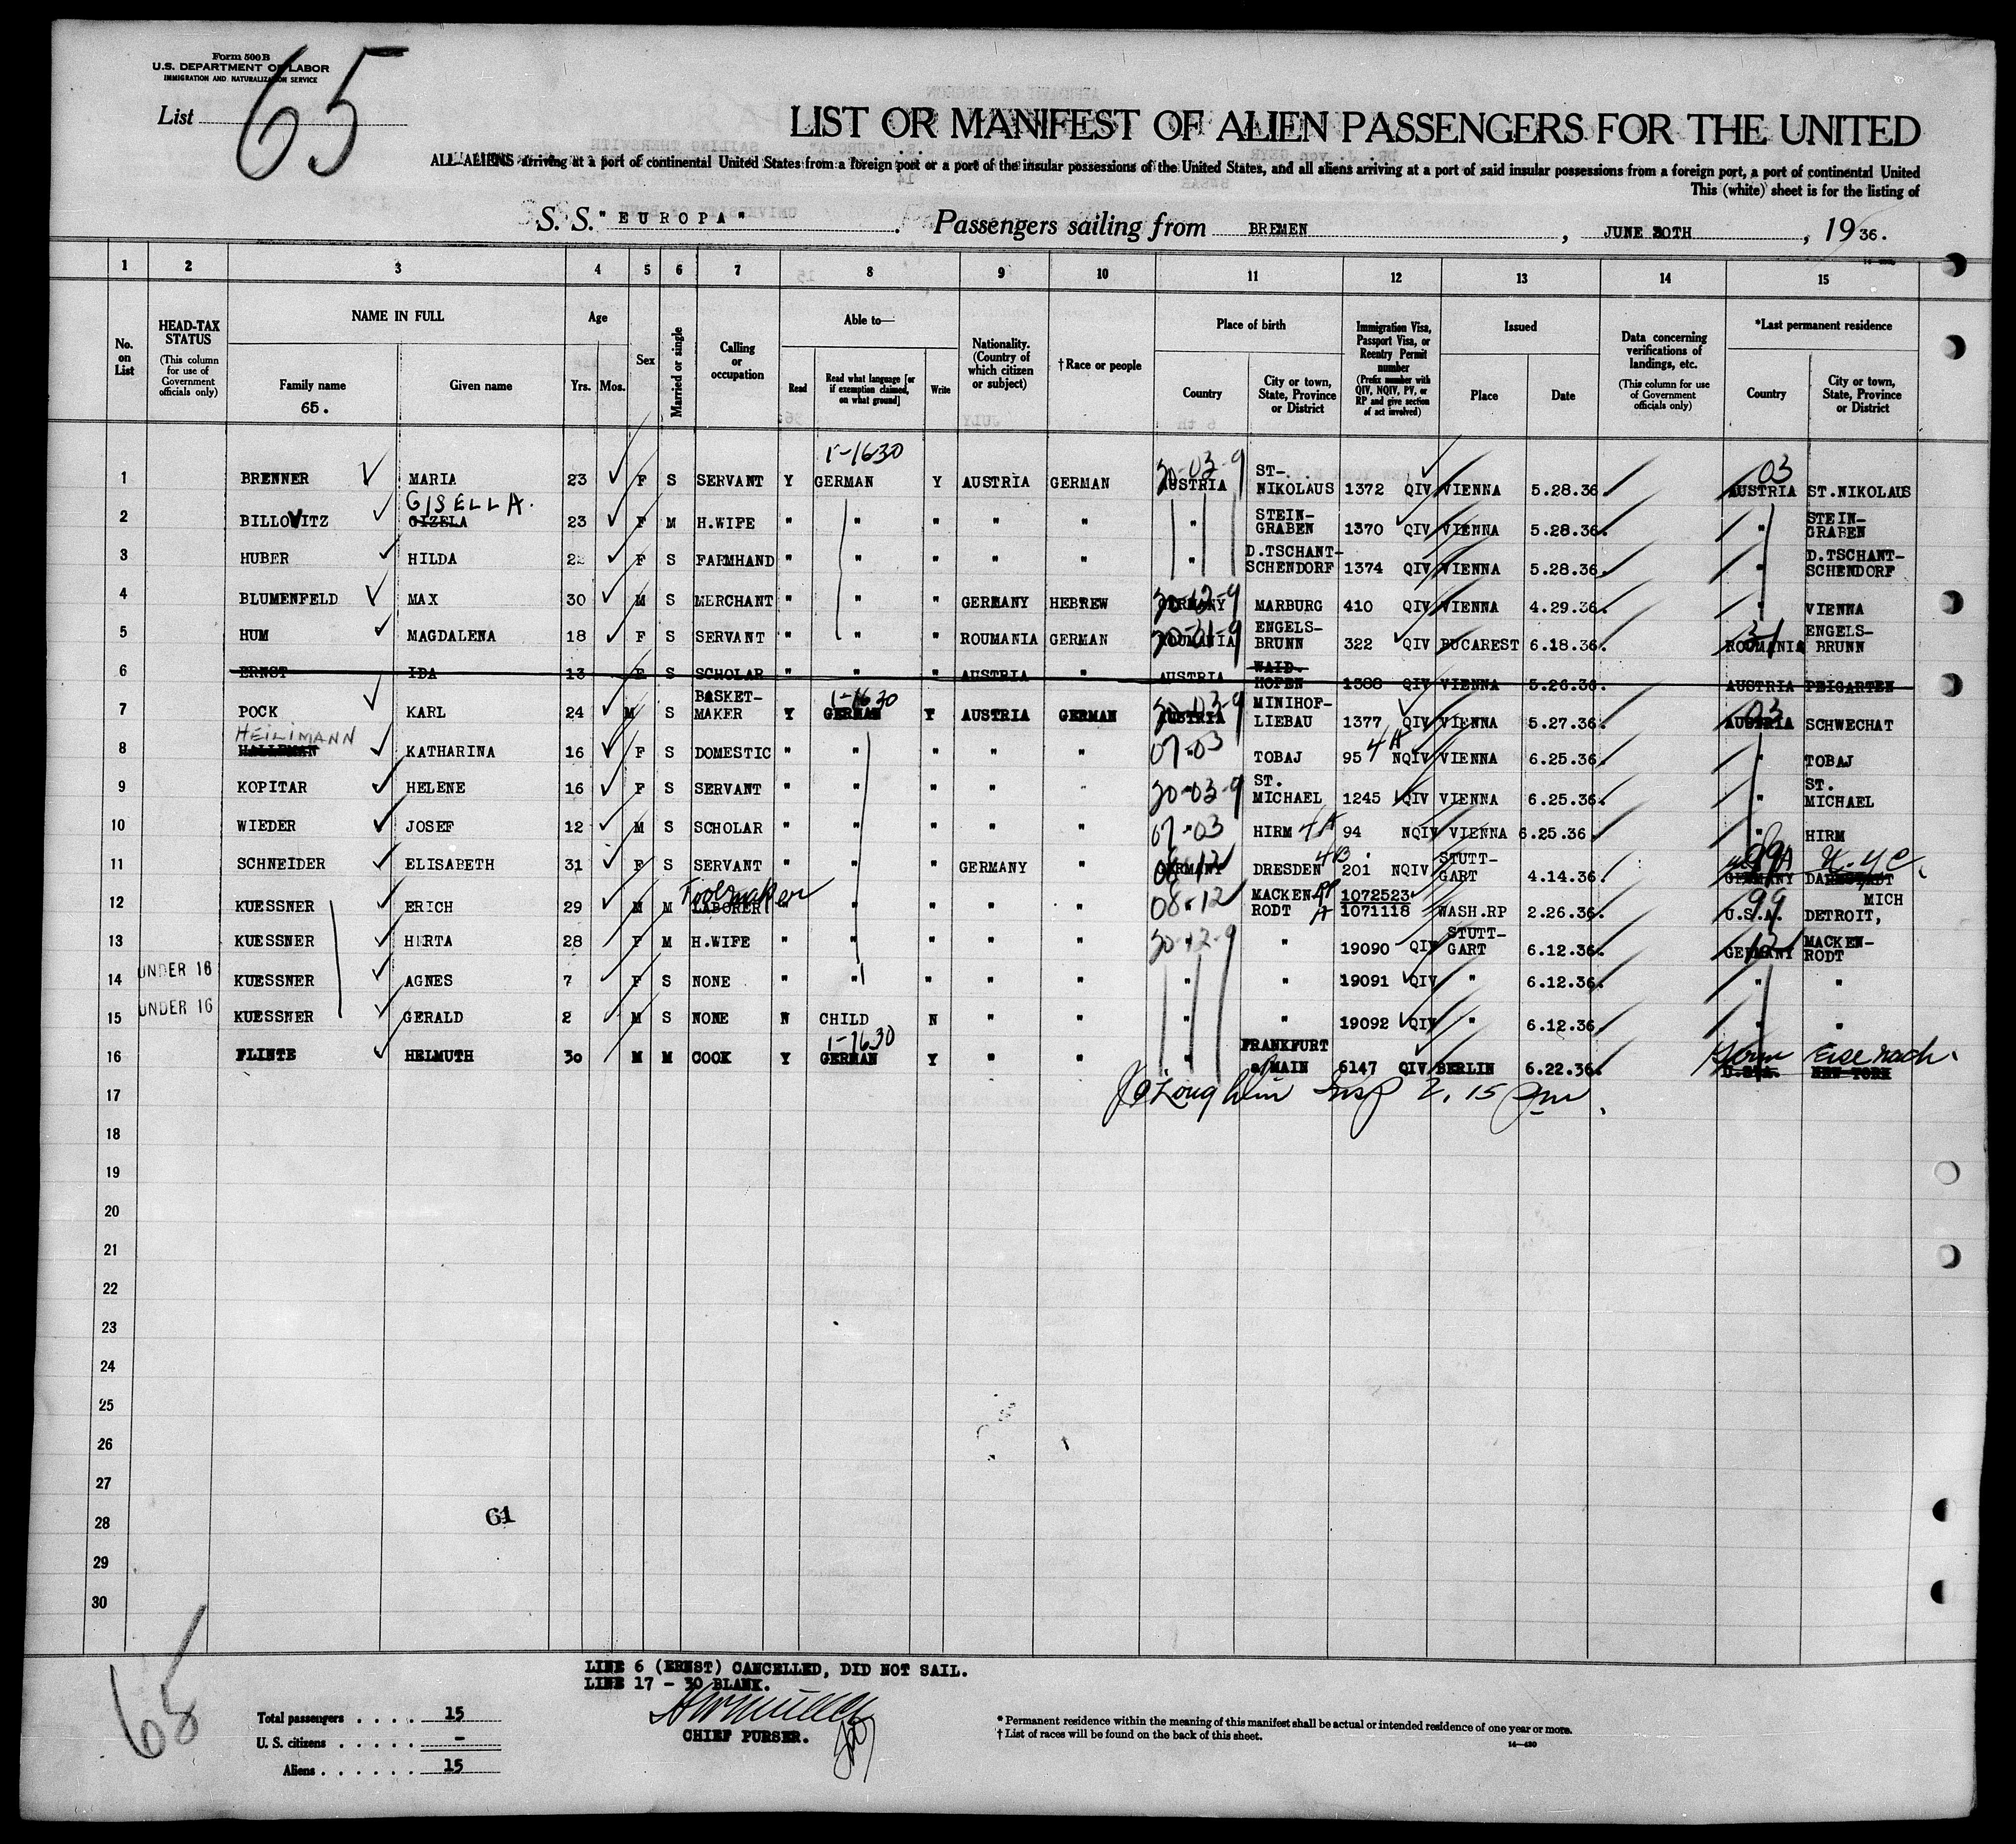 Form 500 B
U.S. DEPARTMENT OF LABOR
IMMIGRATION AND NATURALIZATION SERVICE
List 65
LIST OR MANIFEST OF ALIEN PASSENGERS FOR THE UNITED
ALL ALIENS arriving at a port of continental United States from a foreign port or a port of the insular possessions of the United States, and all aliens arriving at a port of said insular possessions from a foreign port, a port of continental United
This (white) sheet is for the listing of
S. S. "EUROPA". Passengers sailing from BREMEN, JUNE 30TH, 1936.
1 2 3 4 5 6 7 8 9 10 11 12 13 14 15
No. on List
HEAD-TAX STATUS (This column for use of Government officials only)
NAME IN FULL Family name 65. Given name
Age Yrs. Mos.
Sex
Married or single
Calling or occupation
Able to— Read Read what language [or if exemption claimed, on what ground] Write
Nationality. (Country of which citizen or subject)
† Race or people
Place of birth Country City or town, State, Province or District
Immigration Visa, Passport Visa, or Reentry Permit number (Prefix number with QIV, NQIV, PV, or RP and give section of act involved)
Issued Place Date
Data concerning verifications of landings, etc. (This column for use of Government officials only)
*Last permanent residence Country City or town, State, Province or District
1-1630 20-03-9 03
1 BRENNER MARIA 23 F S SERVANT Y GERMAN Y AUSTRIA GERMAN AUSTRIA ST-. NIKOLAUS 1372 QIV VIENNA 5.28.36. AUSTRIA ST.NIKOLAUS
GISELLA.
2 BILLOVITZ GIZELA 23 F M H.WIFE " " " " " " STEIN-GRABEN 1370 QIV VIENNA 5.28.36. " STEIN-GRABEN
3 HUBER HILDA F S FARMHAND " " " " " " D.TSCHANT-SCHENDORF 1374 QIV VIENNA 5.28.36. " D.TSCHANT-SCHENDORF
4 BLUMENFELD MAX 30 M S MERCHANT " " " GERMANY HEBREW GERMANY 20-12-9 MARBURG 410 QIV VIENNA 4.29.36. " VIENNA
5 HUM MAGDALENA 18 F S SERVANT " " ROUMANIA GERMAN ROUMANIA 20-31-9 ENGELS-BRUNN 322 QIV BUCAREST 6.18.36. ROUMANIA 31 ENGELS-BRUNN
6 ERNST IDA 13 F S SCHOLAR " " " AUSTRIA " AUSTRIA WAID-HOFEN 1388 QIV VIENNA 5.26.36. AUSTRIA PEIGARTEN
7 POCK KARL 24 M S BASKET-MAKER Y GERMAN 1-1630 Y AUSTRIA GERMAN AUSTRIA 20-03-9 MINIHOF-LIEBAU 1377 QIV VIENNA 5.27.36. AUSTRIA 03 SCHWECHAT
HEILIMANN
8 KATHARINA 16 F S DOMESTIC " " " " " 07-03 TOBAJ 95 4A NQIV VIENNA 6.25.36. " TOBAJ
9 KOPITAR HELENE 16 F S SERVANT " " " " " 20-03-9 ST. MICHAEL 1245 QIV VIENNA 6.25.36. " ST. MICHAEL
10 WIEDER JOSEF 12 M S SCHOLAR " " " " " 07-03 HIRM 4A 94 NQIV VIENNA 6.25.36. " HIRM
11 SCHNEIDER ELISABETH 31 F S SERVANT " " " GERMANY " GERMANY 08-12 DRESDEN 4B 201 NQIV STUTT-GART 4.14.36. GERMANY 99 N.Y.C.
12 KUESSNER ERICH 29 M M LABORER Toolmaker " " " " " 08-12 MACKEN-RODT RP A 1072523 1071118 WASH.RP 2.26.36. U.S.A. 99 DETROIT, MICH
13 KUESSNER HERTA 28 F M H.WIFE " " " " " 20-12-9 " 19090 QIV STUTT-GART 6.12.36. GERMANY 12 MACKEN-RODT
14 UNDER 16 KUESSNER AGNES 7 F S NONE " " " " " " " 19091 QIV " 6.12.36. " "
15 UNDER 16 KUESSNER GERALD 2 M S NONE N CHILD N " " " " 19092 QIV " 6.12.36. " "
16 FLINTE HELMUTH 30 M M COOK Y GERMAN 1-1630 Y " " " FRANKFURT a/MAIN 6147 QIV BERLIN 6.22.36. U.S.A. Germ NEW YORK Eisenach.
17 Insp 2.15 pm.
18
19
20
21
22
23
24
25
26
27
28 61
29
30
LINE 6 (ERNST) CANCELLED, DID NOT SAIL.
LINE 17 - 30 BLANK.
CHIEF PURSER.
65
Total passengers . . . . 15
U. S. citizens . . . . . —
Aliens . . . . . . 15
* Permanent residence within the meaning of this manifest shall be actual or intended residence of one year or more.
† List of races will be found on the back of this sheet.
14—430